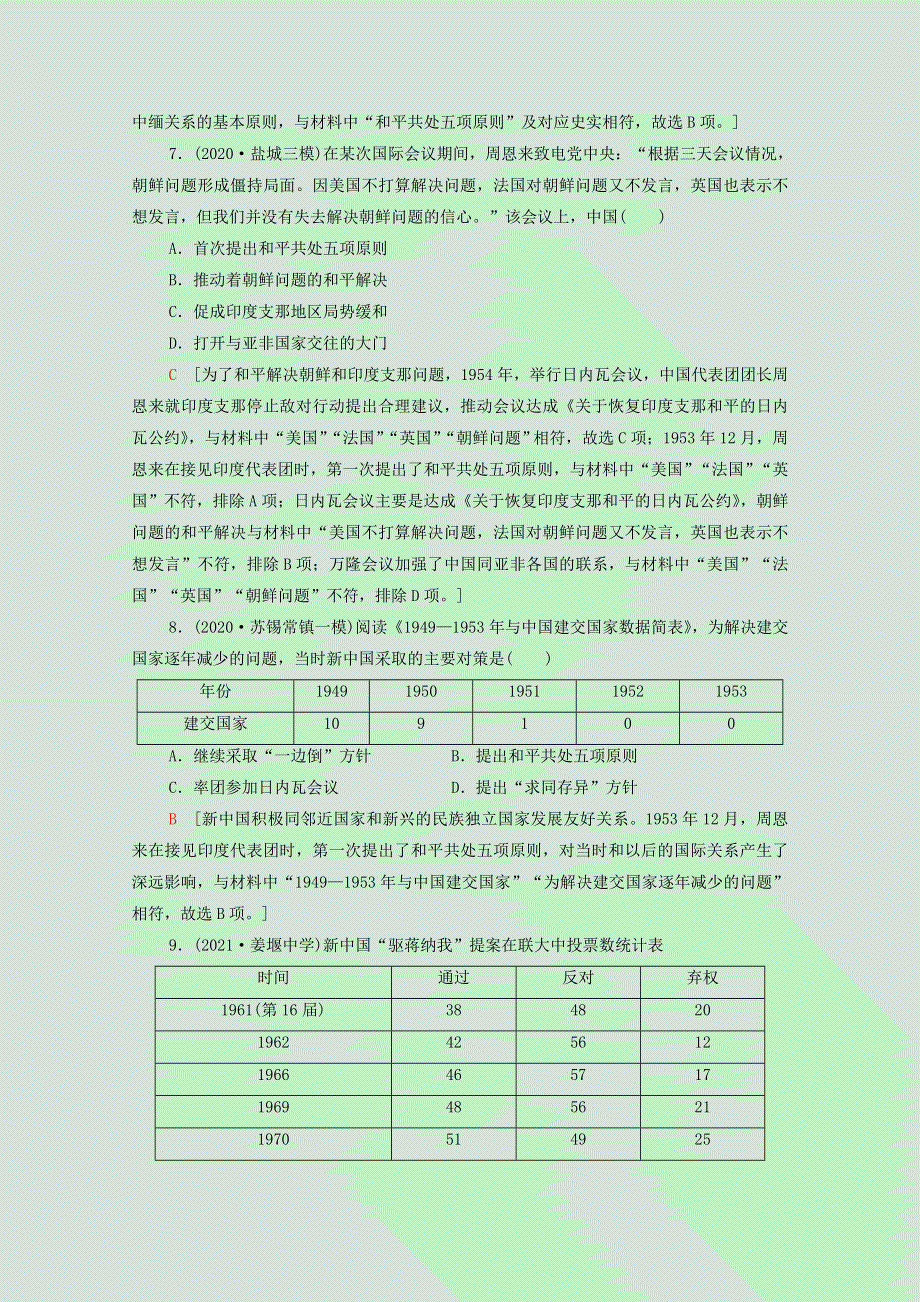 中缅关系的基本原则，与材料中“和平共处五项原则”及对应史实相符，故选 B 项。]
7．(2020·盐城三模)在某次国际会议期间，周恩来致电党中央：“根据三天会议情况，
朝鲜问题形成僵持局面。因美国不打算解决问题，法国对朝鲜问题又不发言，英国也表示不
想发言，但我们并没有失去解决朝鲜问题的信心。”该会议上，中国(　　)
A．首次提出和平共处五项原则
B．推动着朝鲜问题的和平解决
C．促成印度支那地区局势缓和
D．打开与亚非国家交往的大门
C　[为了和平解决朝鲜和印度支那问题，1954 年，举行日内瓦会议，中国代表团团长周
恩来就印度支那停止敌对行动提出合理建议，推动会议达成《关于恢复印度支那和平的日内
瓦公约》，与材料中“美国”“法国”“英国”“朝鲜问题”相符，故选 C 项；1953 年 12 月，周
恩来在接见印度代表团时，第一次提出了和平共处五项原则，与材料中“美国”“法国”“英
国”不符，排除 A 项；日内瓦会议主要是达成《关于恢复印度支那和平的日内瓦公约》，朝鲜
问题的和平解决与材料中“美国不打算解决问题，法国对朝鲜问题又不发言，英国也表示不
想发言”不符，排除 B 项；万隆会议加强了中国同亚非各国的联系，与材料中“美国”“法
国”“英国”“朝鲜问题”不符，排除 D 项。]
8．(2020·苏锡常镇一模)阅读《1949—1953 年与中国建交国家数据简表》，为解决建交
国家逐年减少的问题，当时新中国采取的主要对策是(　　)
年份 1949 1950 1951 1952 1953
建交国家 10 9 1 0 0
A．继续采取“一边倒”方针　　B．提出和平共处五项原则
C．率团参加日内瓦会议　　D．提出“求同存异”方针
B　[新中国积极同邻近国家和新兴的民族独立国家发展友好关系。1953 年 12 月，周恩
来在接见印度代表团时，第一次提出了和平共处五项原则，对当时和以后的国际关系产生了
深远影响，与材料中“1949—1953 年与中国建交国家”“为解决建交国家逐年减少的问题”
相符，故选 B 项。]
9．(2021·姜堰中学)新中国“驱蒋纳我”提案在联大中投票数统计表
时间 通过 反对 弃权
1961(第 16 届) 38 48 20
1962 42 56 12
1966 46 57 17
1969 48 56 21
1970 51 49 25